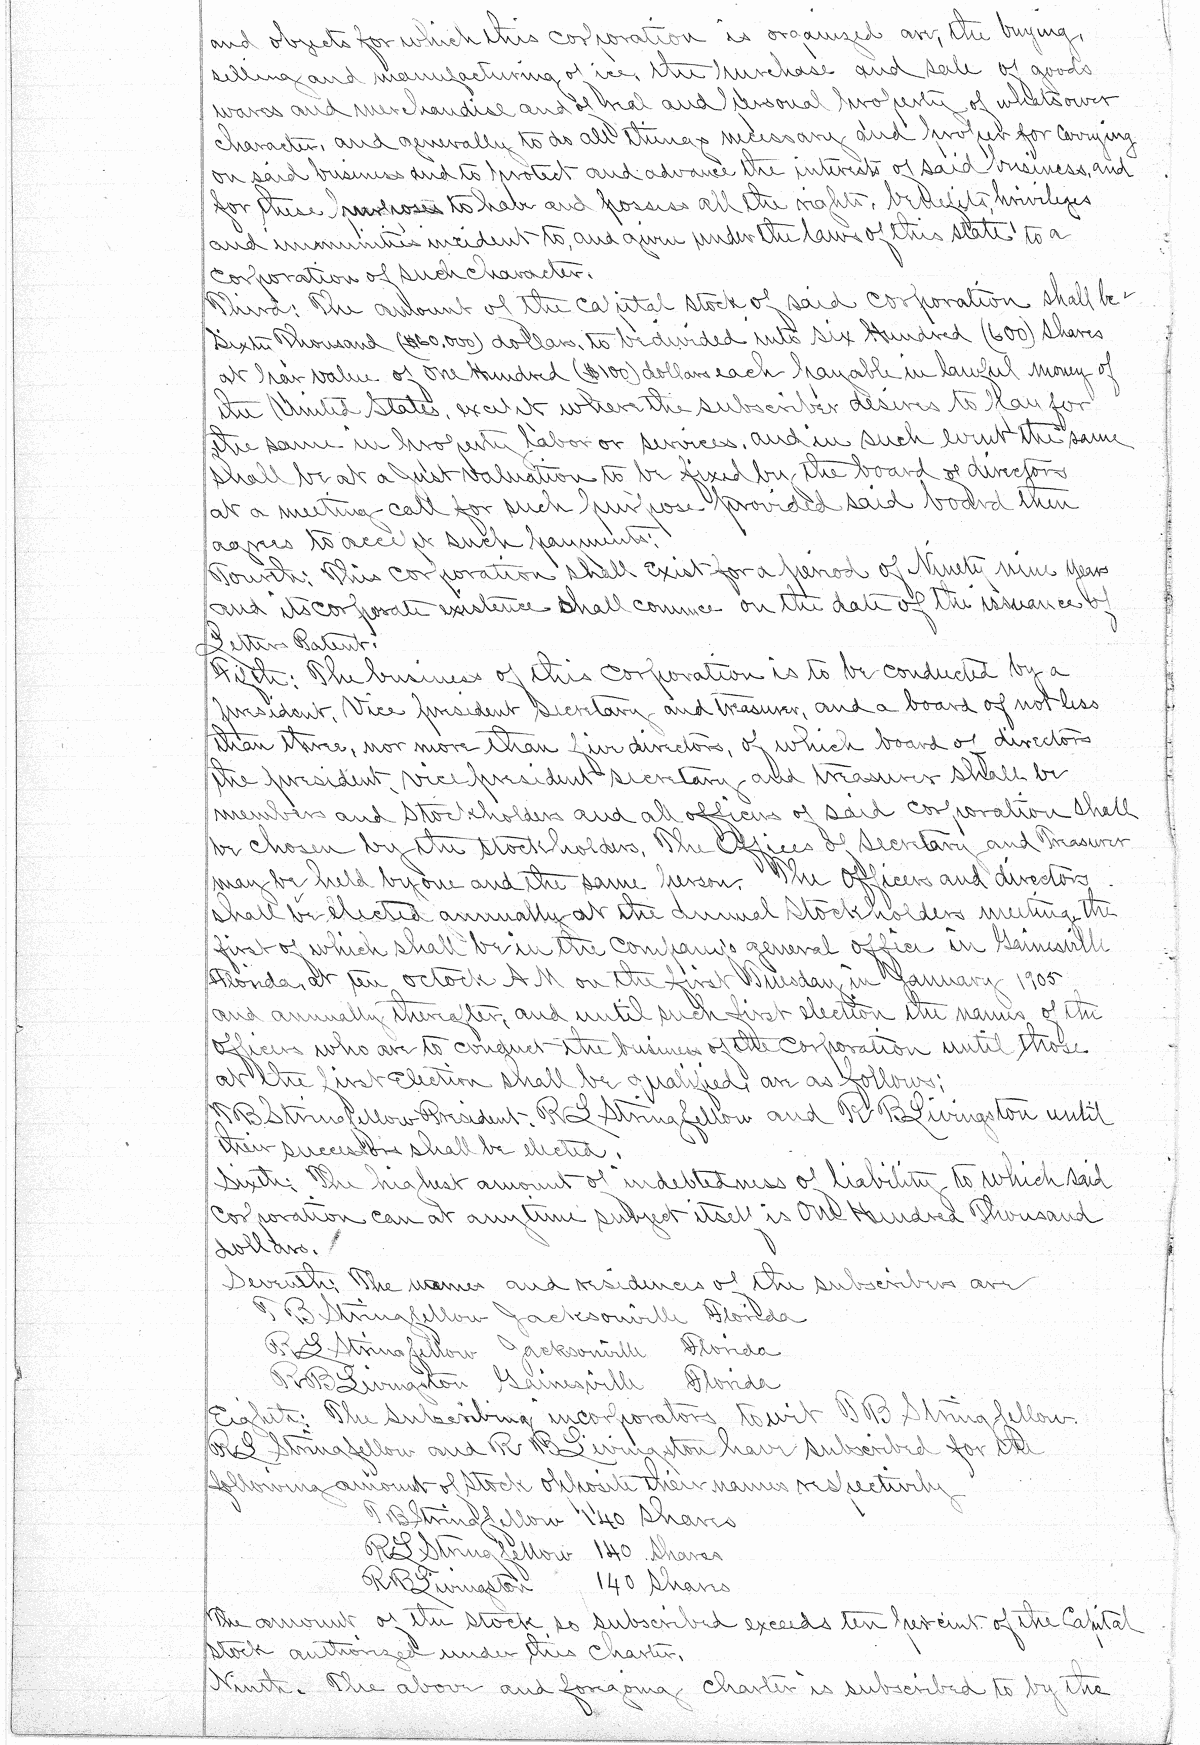 and objects for which this corporation is organized are, the buying,
selling and manufacturing of ice, the purchase and sale of goods
wares and merchandise and of real and personal property of whatsoever
character, and generally to do all things necessary and proper for carrying
on said business and to protect and advance the interests of said business, and
for these purposes to have and possess all the rights, benefits, privileges
and immunities incident to, and given under the laws of this state to a
corporation of such character.
Third: The amount of the capital stock of said corporation shall be
Sixty Thousand ($60,000) dollars, to be divided into six Hundred (600) shares
at par value of One Hundred ($100) dollars each payable in lawful money of
the United States, except where the subscriber desires to pay for
the same in property labor or services, and in such event the same
shall be at a just valuation to be fixed by the board of directors
at a meeting call for such purpose provided said board then
agrees to accept such payments.
Fourth: This corporation shall exist for a period of Ninety nine years
and its corporate existence shall commce on the date of the issuance of
Letters Patent.
Fifth: The business of this corporation is to be conducted by a
president, Vice president secretary and treasurer, and a board of not less
than three, nor more than five directors, of which board of directors
the president, vice president secretary and treasurer shall be
members and stockholders and all officers of said corporation shall
be chosen by the stockholders. The Offices of Secretary and Treasurer
may be held by one and the same person. The Officers and directors
shall be elected annually at the annual stockholders meeting, the
first of which shall be in the company's general office in Gainesville
Florida, at ten octock A M on the first Tuesday in January 1905
and annually thereafter, and until such first election the names of the
officers who are to conduct the business of the corporation until those
at the first election shall be qualified, are as follows;
T B Stringfellow President. R L Stringfellow and R B Livingston until
their successors shall be elected.
Sixth: The highest amount of indebtedness of liability to which said
corporation can at any time subject itself is One Hundred Thousand
dollars.
Seventh; The names and residences of the subscribers are
T B Stringfellow Jacksonville Florida
R L Stringfellow Jacksonville Florida
R B Livingston Gainesville Florida
Eighth: The subscribing incorporators to wit T B Stringfellow.
R L Stringfellow and R B Livingston have subscribed for the
following amount of stock opposite their names respectively
T B Stringfellow 140 Shares
R L Stringfellow 140 Shares
R B Livingston 140 Shares
The amount of the stock so subscribed exceeds ten percent of the Capital
stock authorized under this Charter.
Ninth. The above and foregoing charter is subscribed to by the